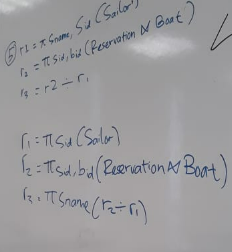 ⑤ r1 = π sname, sid (Sailor)
r2 = π sid, bid (Reservation ⋈ Boat)
r3 = r2 ÷ r1
r1 = π sid (Sailor)
r2 = π sid, bid (Reservation ⋈ Boat)
r3 = π sname (r2 ÷ r1)